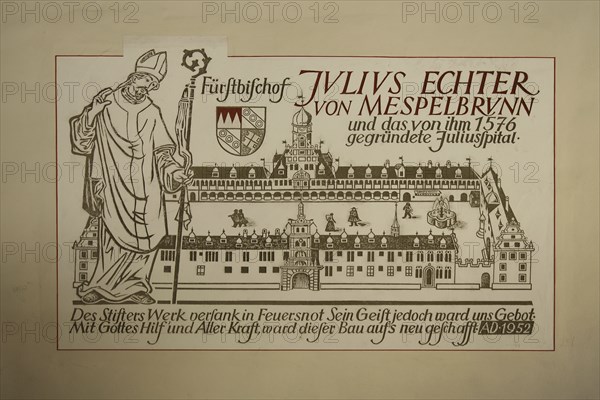 Fürstbischof JVLIVS ECHTER
VON MESPELBRVNN
und das von ihm 1576
gegründete Juliusspital.
Des Stifters Werk versank in Feuersnot. Sein Geist jedoch ward uns Gebot.
Mit Gottes Hilf und Aller Kraft, ward dieser Bau auf's neu geschafft. AD·1952